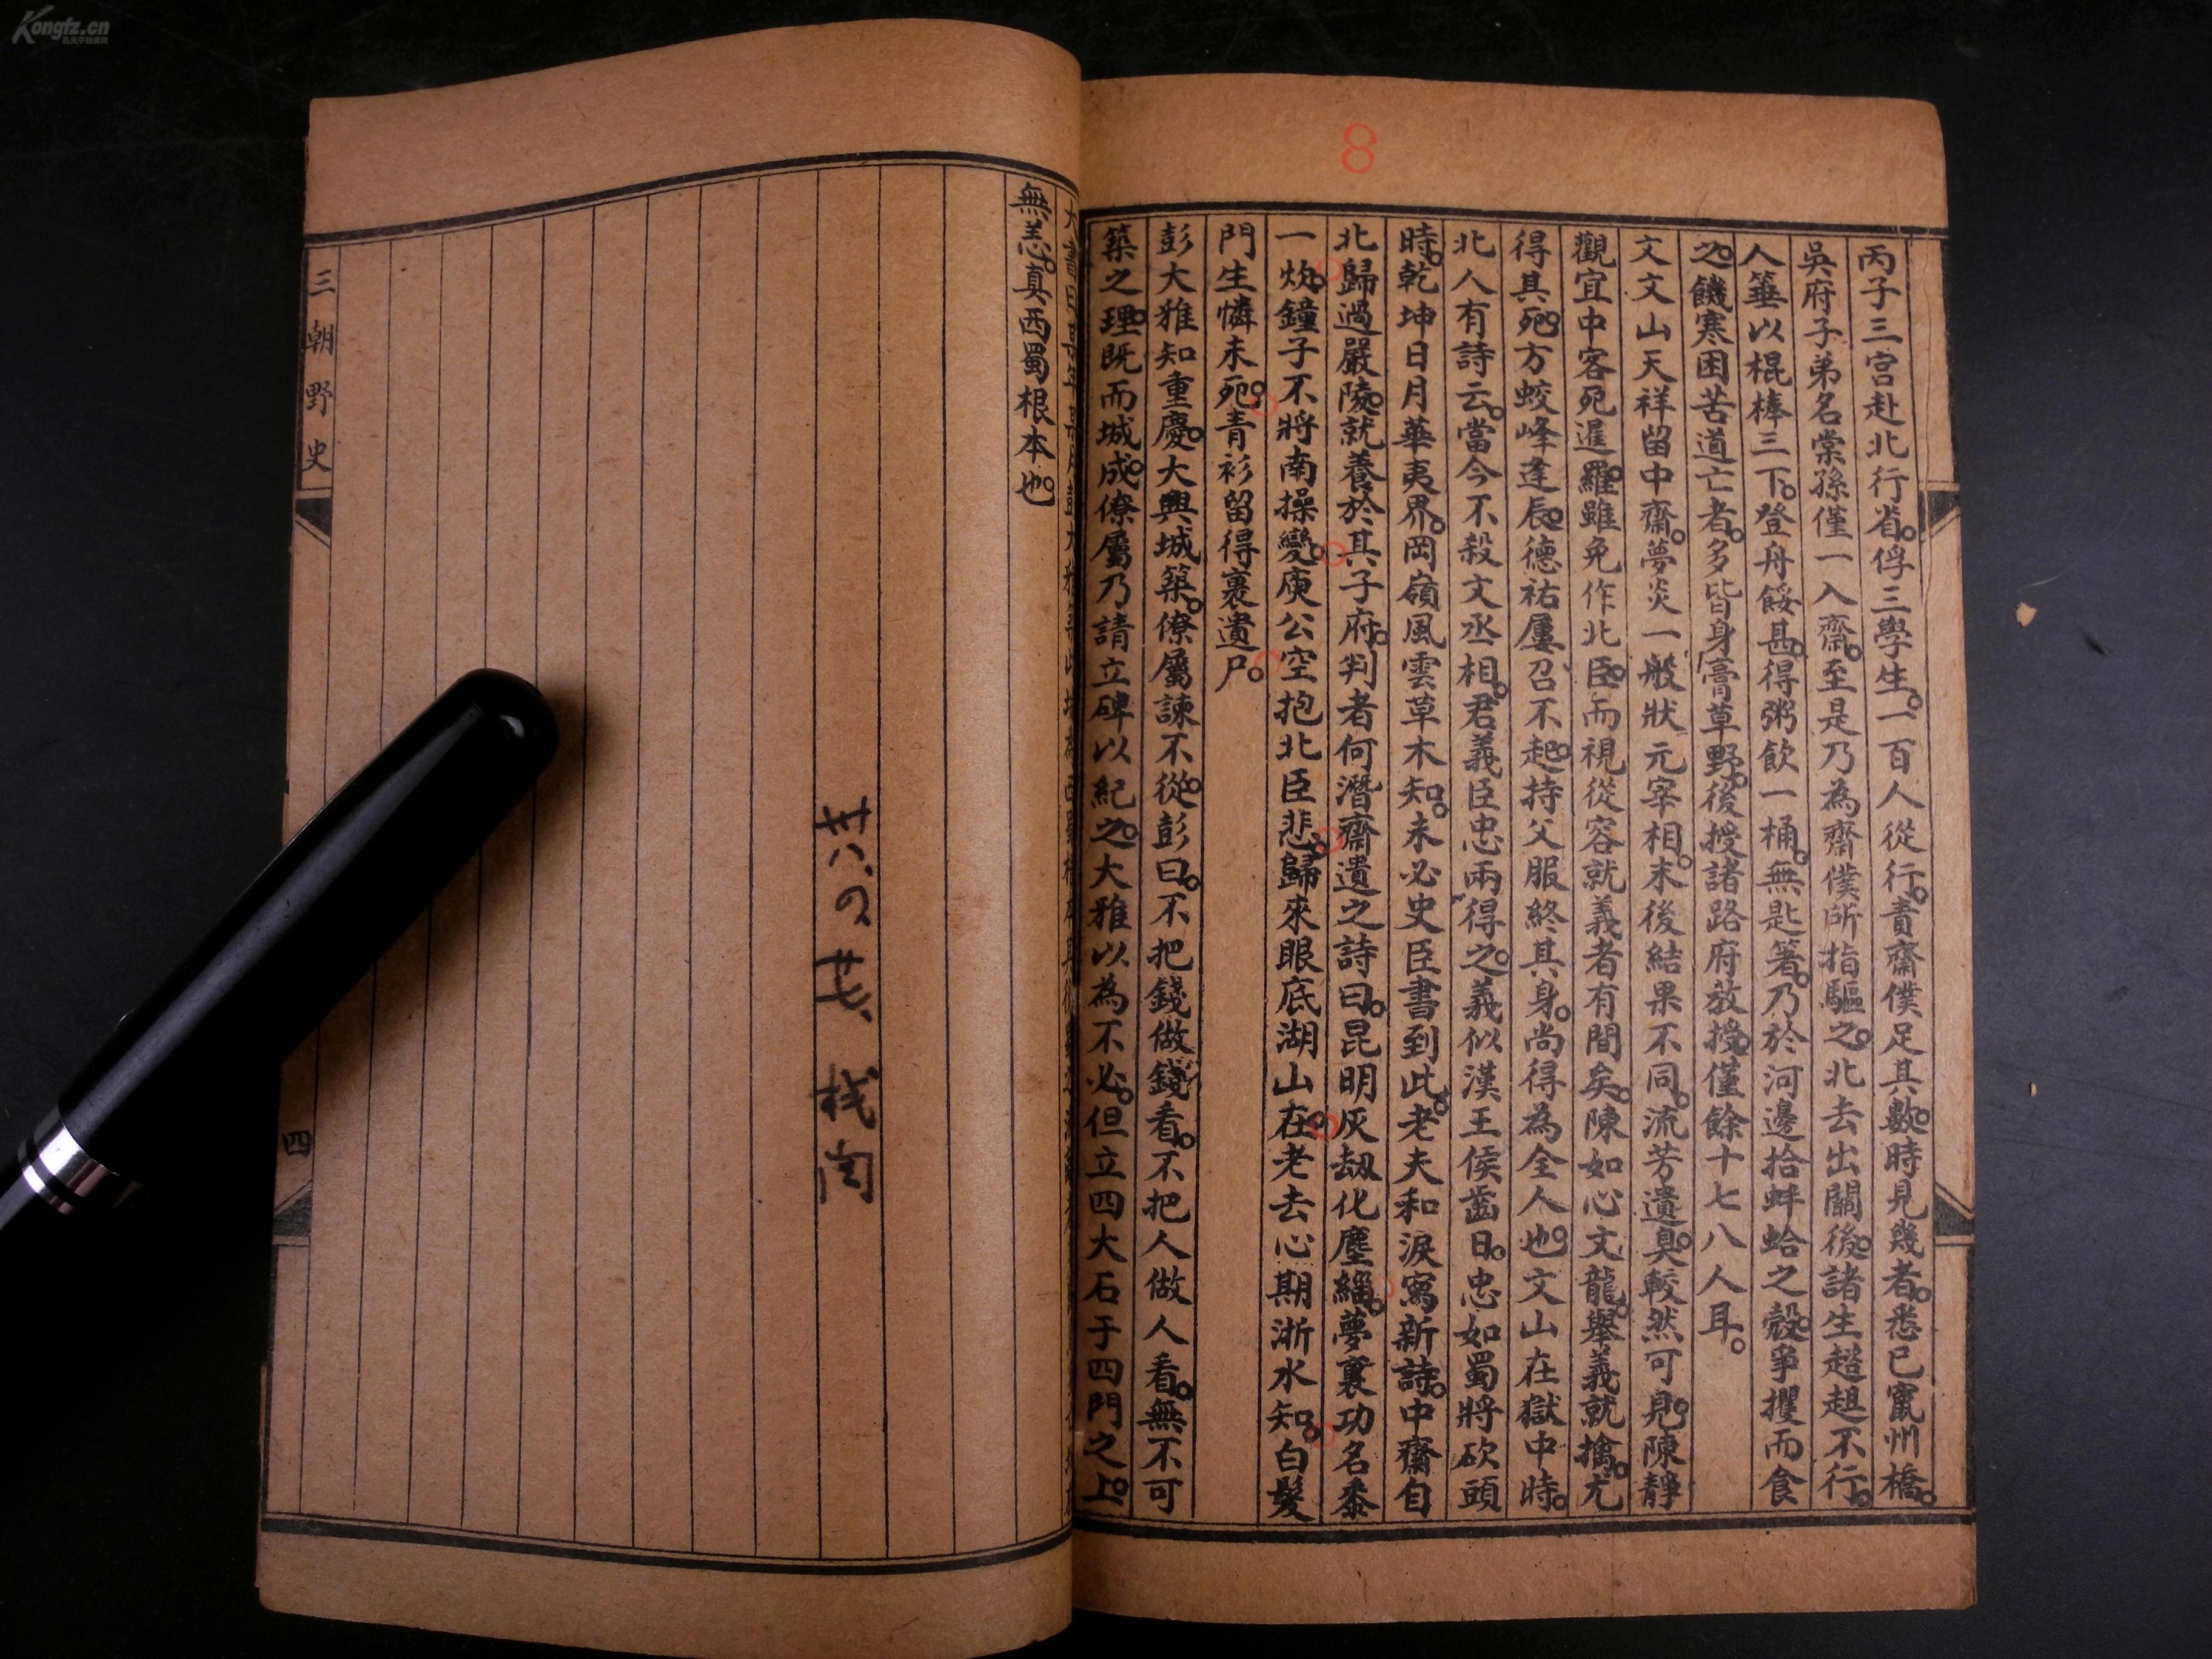 8
丙子三宮赴北行省。俘三學生。一百人從行。責齋僕足其數。時見幾者。悉已竄州橋。
吳府子弟名棠孫僅一入齋。至是乃為齋僕所指驅之。北去出關後。諸生趑趄不行。
人箠以棍棒三下。登舟餒甚。得粥飲一桶。無匙箸。乃於河邊拾蚌蛤之殼。爭攫而食
之。饑寒困苦道亡者。多皆身膏草野。後授諸路府教授。僅餘十七八人耳。
文文山天祥留中齋。夢炎一般狀元宰相。末後結果不同。流芳遺臭。較然可見。陳靜
觀宜中客死暹羅。雖免作北臣。而視從容就義者有間矣。陳如心文龍。舉義就擒。尤
得其死。方蛟峰逢辰。德祐屢召不起。持父服終其身。尚得為全人也。文山在獄中時。
北人有詩云。當今不殺文丞相。君義臣忠兩得之。義似漢王侯齒日。忠如蜀將砍頭
時。乾坤日月華夷界。岡嶺風雲草木知。未必史臣書到此。老夫和淚寫新詩。中齋自
北歸過嚴陵。就養於其子府。判者何潛齋遺之詩曰。昆明灰劫化塵緇。夢裏功名黍
一炊。鐘子不將南操變。庾公空抱北臣悲。歸來眼底湖山在。老去心期浙水知。白髮
門生憐未死。青衫留得裹遺尸。
彭大雅知重慶。大興城築。僚屬諫不從。彭曰。不把錢做錢看。不把人做人看。無不可
築之理。既而城成。僚屬乃請立碑以紀之。大雅以為不必。但立四大石于四門之上。
無恙。真西蜀根本也。
三朝野史
四